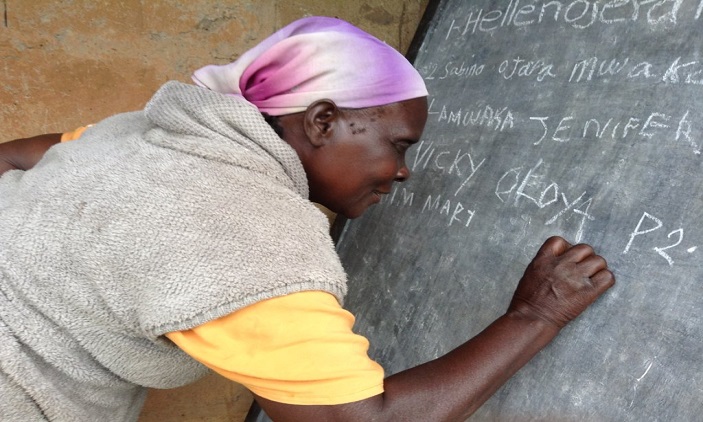 1-Hellenojera
2 Sabina ojara mwaka
AMWAKA JENIFER
VICKY OLOYA P2.
MARY